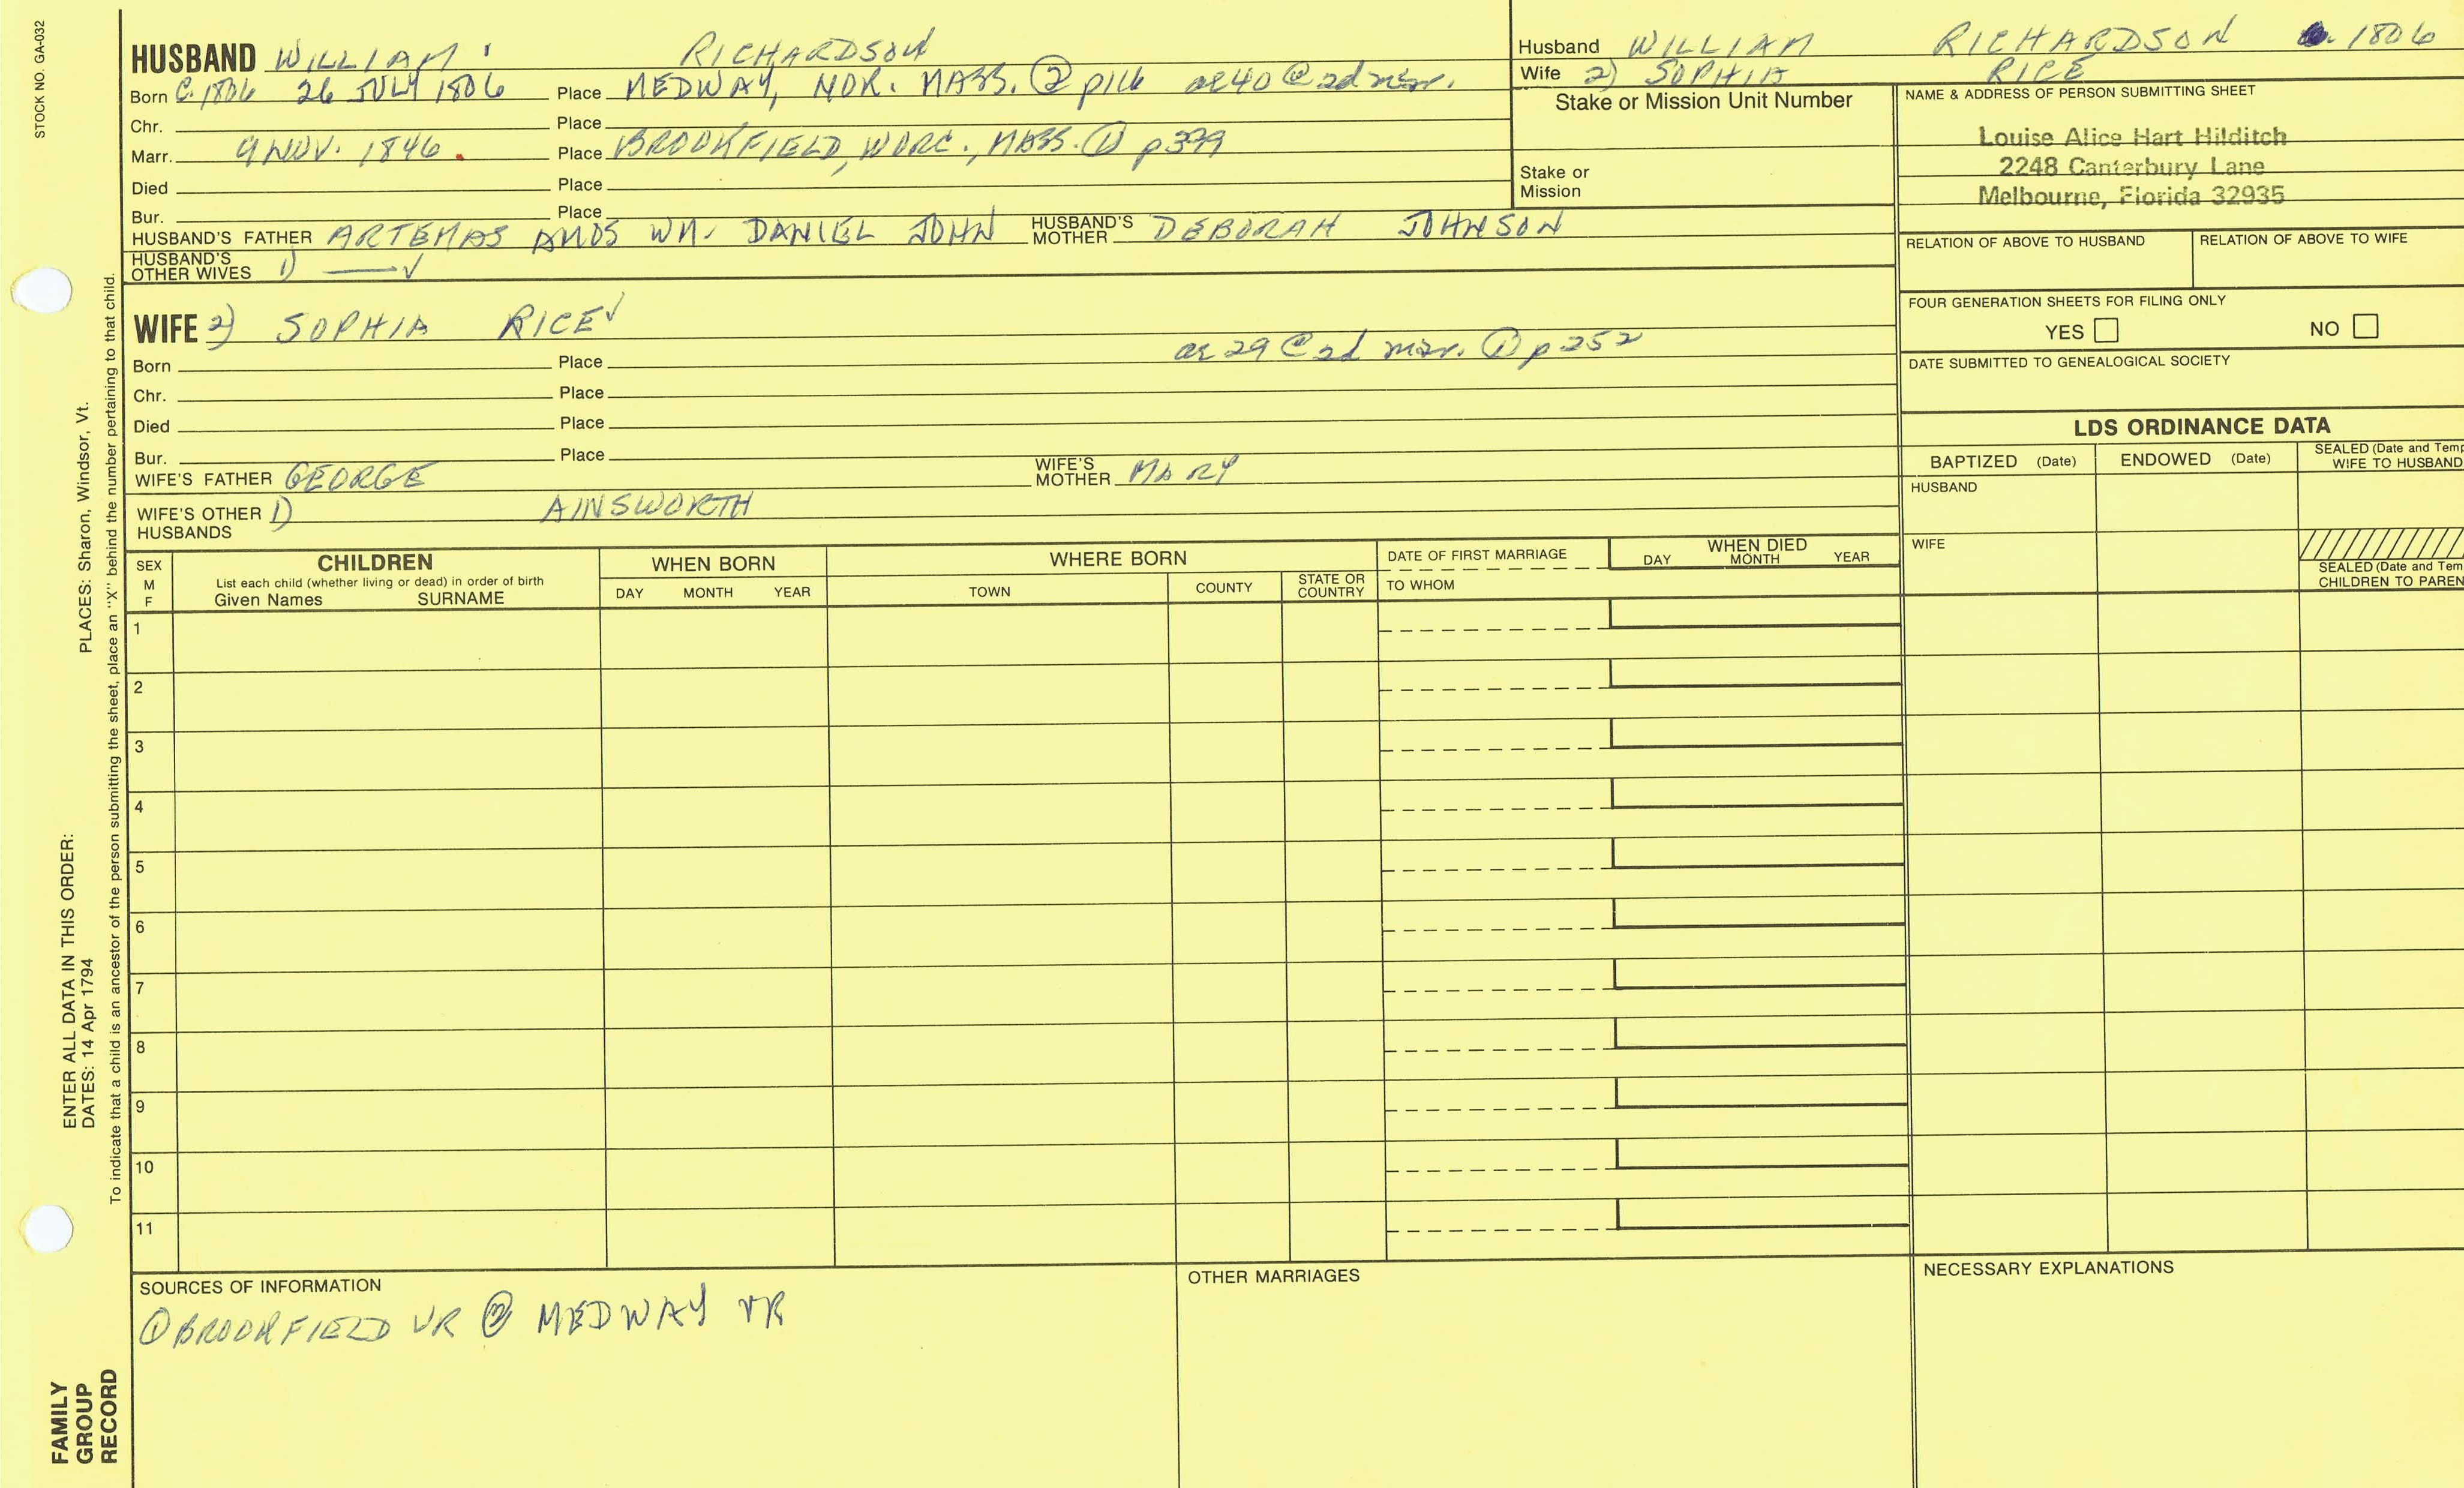 STOCK NO. GA-032
HUSBAND WILLIAM RICHARDSON
Born C. 1806 26 JULY 1806 Place MEDWAY, NOR. MASS. ② p116 ae 40 @ 2d mar.
Chr. Place
Marr. 9 NOV. 1846. Place BROOKFIELD, WORC., MASS. ① p379
Died Place
Bur. Place
HUSBAND'S FATHER ARTEMAS AMOS WM. DANIEL JOHN HUSBAND'S MOTHER DEBORAH JOHNSON
HUSBAND'S OTHER WIVES 1) —✓
Husband WILLIAM RICHARDSON 1806
Wife 2) SOPHIA RICE
Stake or Mission Unit Number
Stake or
Mission
NAME & ADDRESS OF PERSON SUBMITTING SHEET
Louise Alice Hart Hilditch
2248 Canterbury Lane
Melbourne, Florida 32935
RELATION OF ABOVE TO HUSBAND RELATION OF ABOVE TO WIFE
FOUR GENERATION SHEETS FOR FILING ONLY
YES NO
DATE SUBMITTED TO GENEALOGICAL SOCIETY
WIFE 2) SOPHIA RICE✓
Born Place ae 29 @ 2d mar. ① p252
Chr. Place
Died Place
Bur. Place
WIFE'S FATHER GEORGE WIFE'S MOTHER MARY
WIFE'S OTHER HUSBANDS 1) AINSWORTH
LDS ORDINANCE DATA
BAPTIZED (Date) ENDOWED (Date) SEALED (Date and Temp
WIFE TO HUSBAND
HUSBAND
WIFE
SEALED (Date and Tem
CHILDREN TO PAREN
SEX
M
F
CHILDREN
List each child (whether living or dead) in order of birth
Given Names SURNAME
WHEN BORN
DAY MONTH YEAR
WHERE BORN
TOWN COUNTY STATE OR COUNTRY
DATE OF FIRST MARRIAGE
TO WHOM
WHEN DIED
DAY MONTH YEAR
1
2
3
4
5
6
7
8
9
10
11
SOURCES OF INFORMATION
① BROOKFIELD VR ② MEDWAY VR
OTHER MARRIAGES
NECESSARY EXPLANATIONS
PLACES: Sharon, Windsor, Vt.
ENTER ALL DATA IN THIS ORDER:
DATES: 14 Apr 1794
To indicate that a child is an ancestor of the person submitting the sheet, place an "X" behind the number pertaining to that child.
FAMILY
GROUP
RECORD